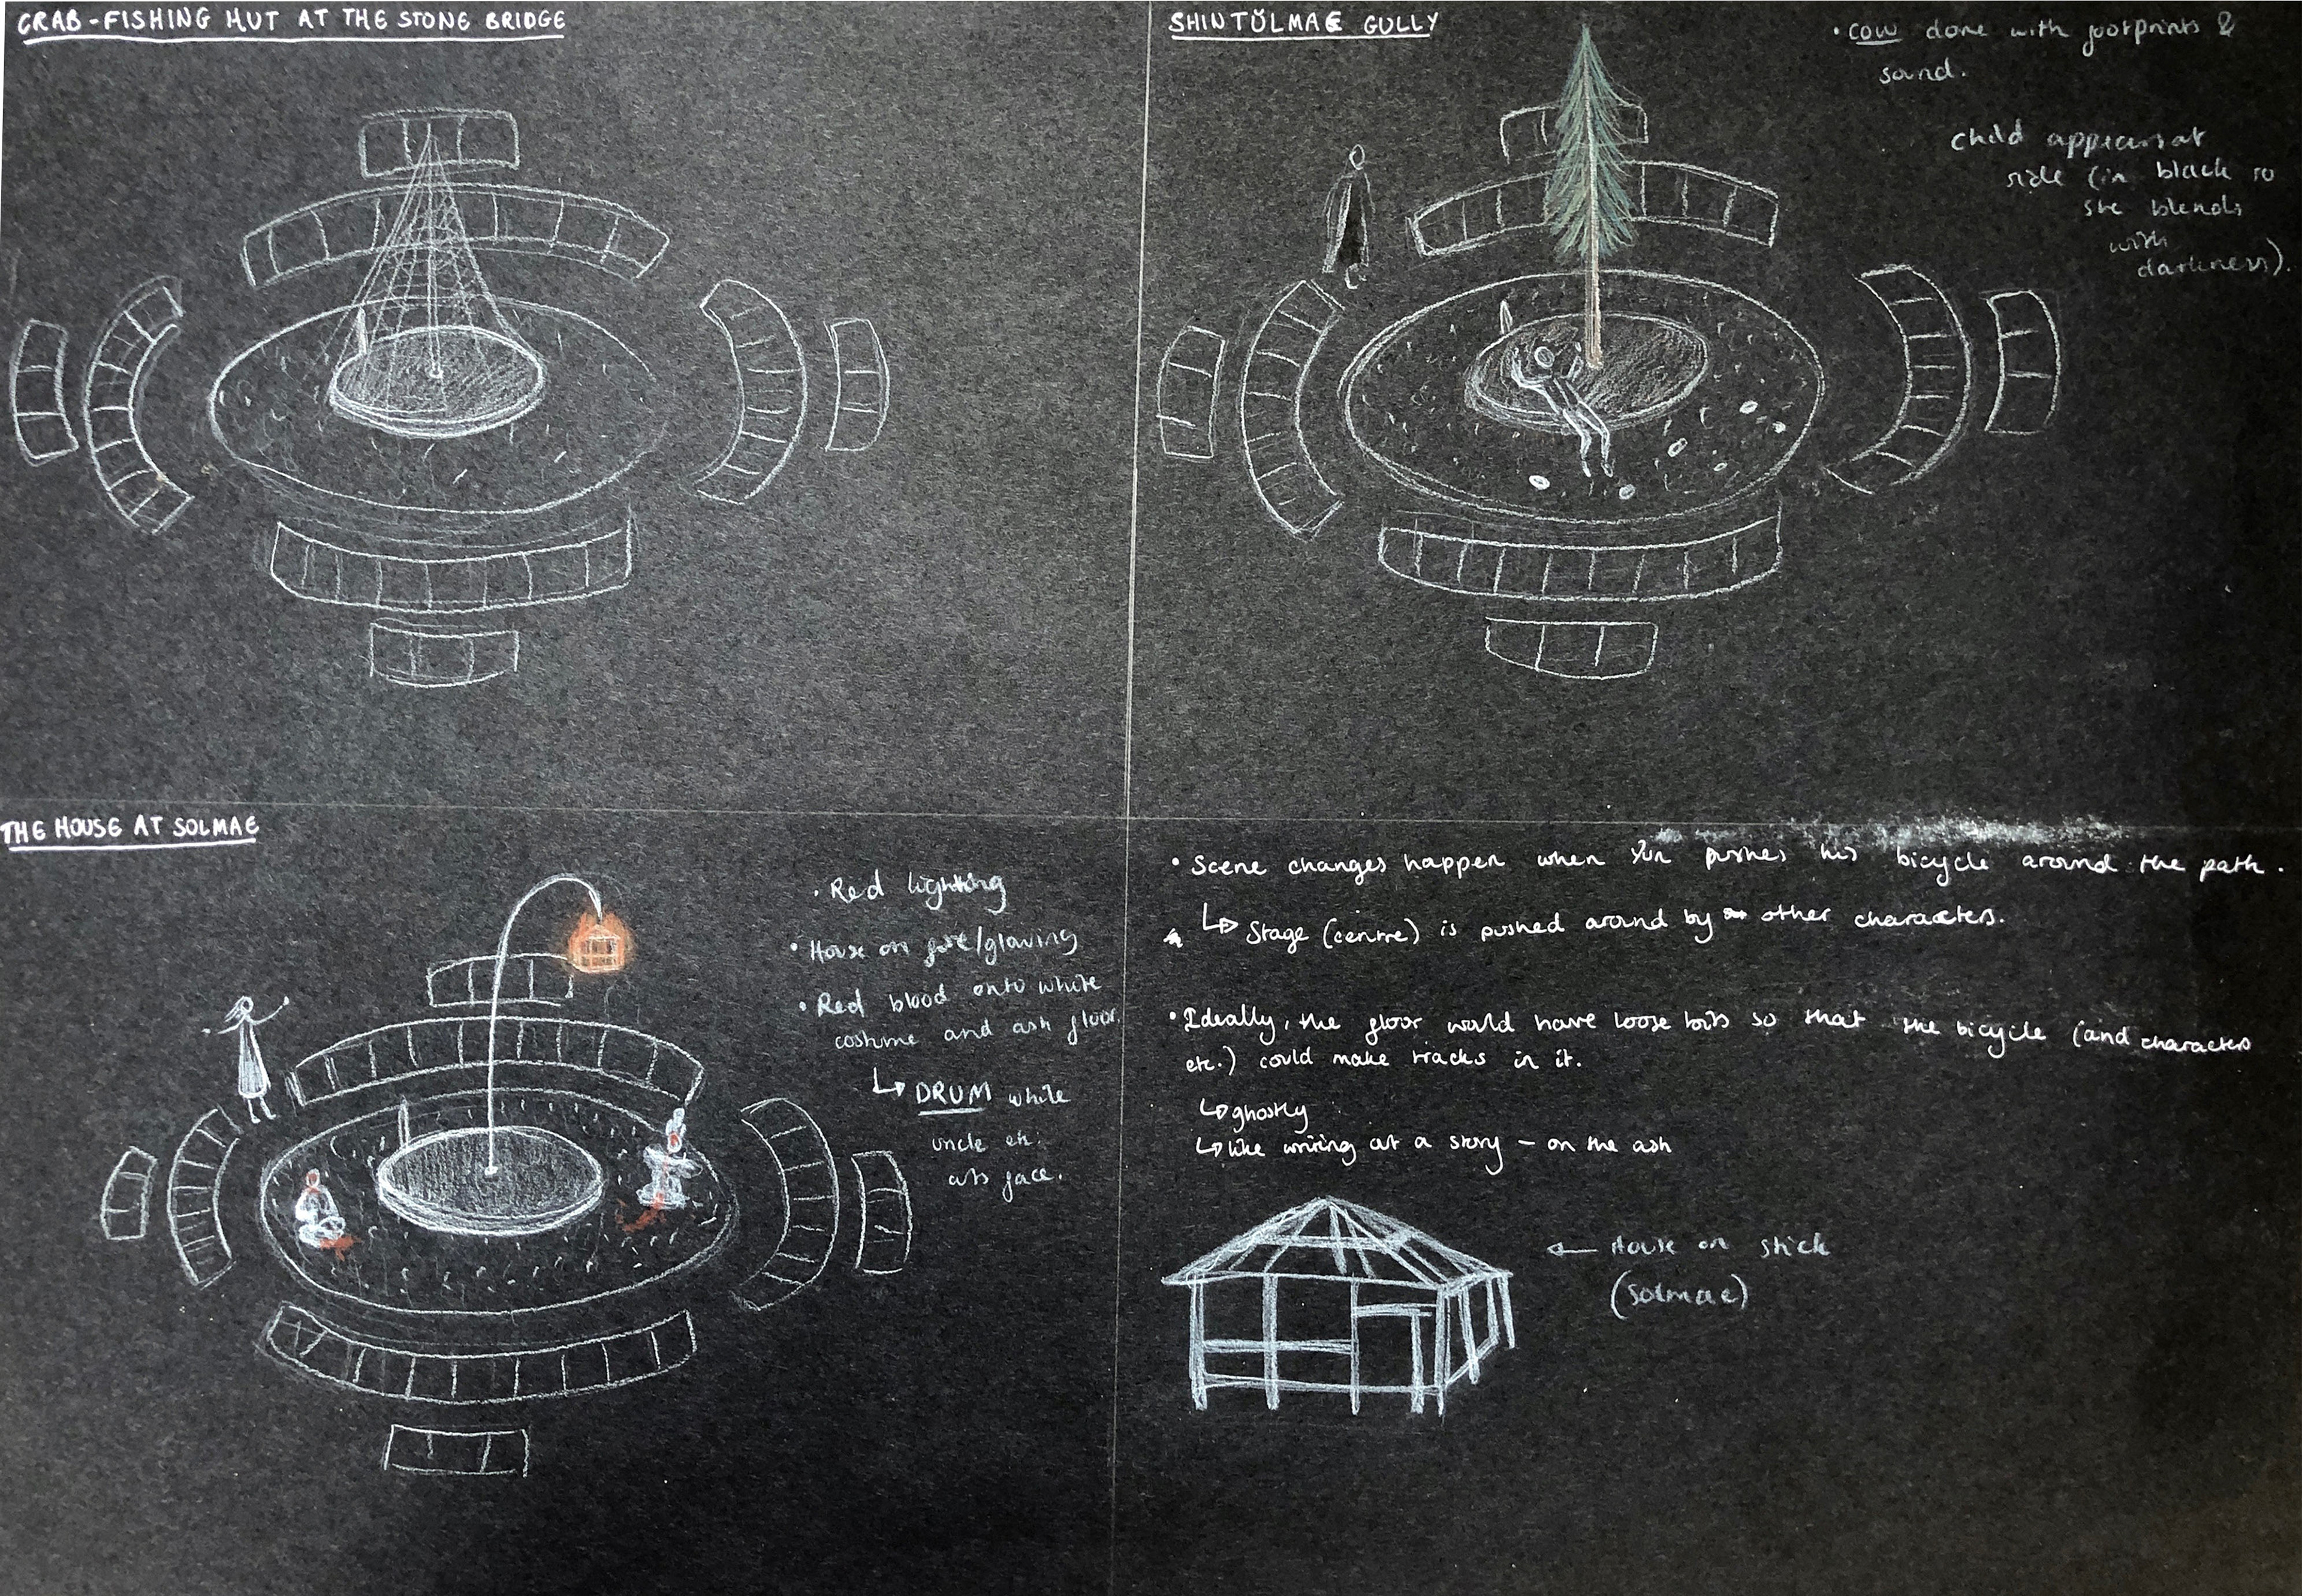 CRAB-FISHING HUT AT THE STONE BRIDGE
SHINTŬLMAE GULLY
• cow done with footprints &
sound.
child appears at
side (in black so
she blends
with
darkness).
THE HOUSE AT SOLMAE
• Red lighting
• House on fire/glowing
• Red blood onto white
costume and ash floor.
↳ DRUM while
uncle etc.
cuts face.
• Scene changes happen when Yun pushes his bicycle around the path.
↳ Stage (centre) is pushed around by other characters.
• Ideally, the floor would have loose bits so that the bicycle (and characters
etc.) could make tracks in it.
↳ ghostly
↳ like writing out a story – on the ash
← House on stick
(Solmae)